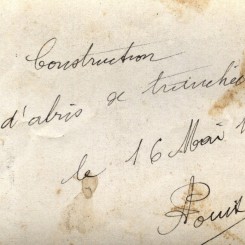 Construction
d'abris de tranchée
le 16 Mai 1